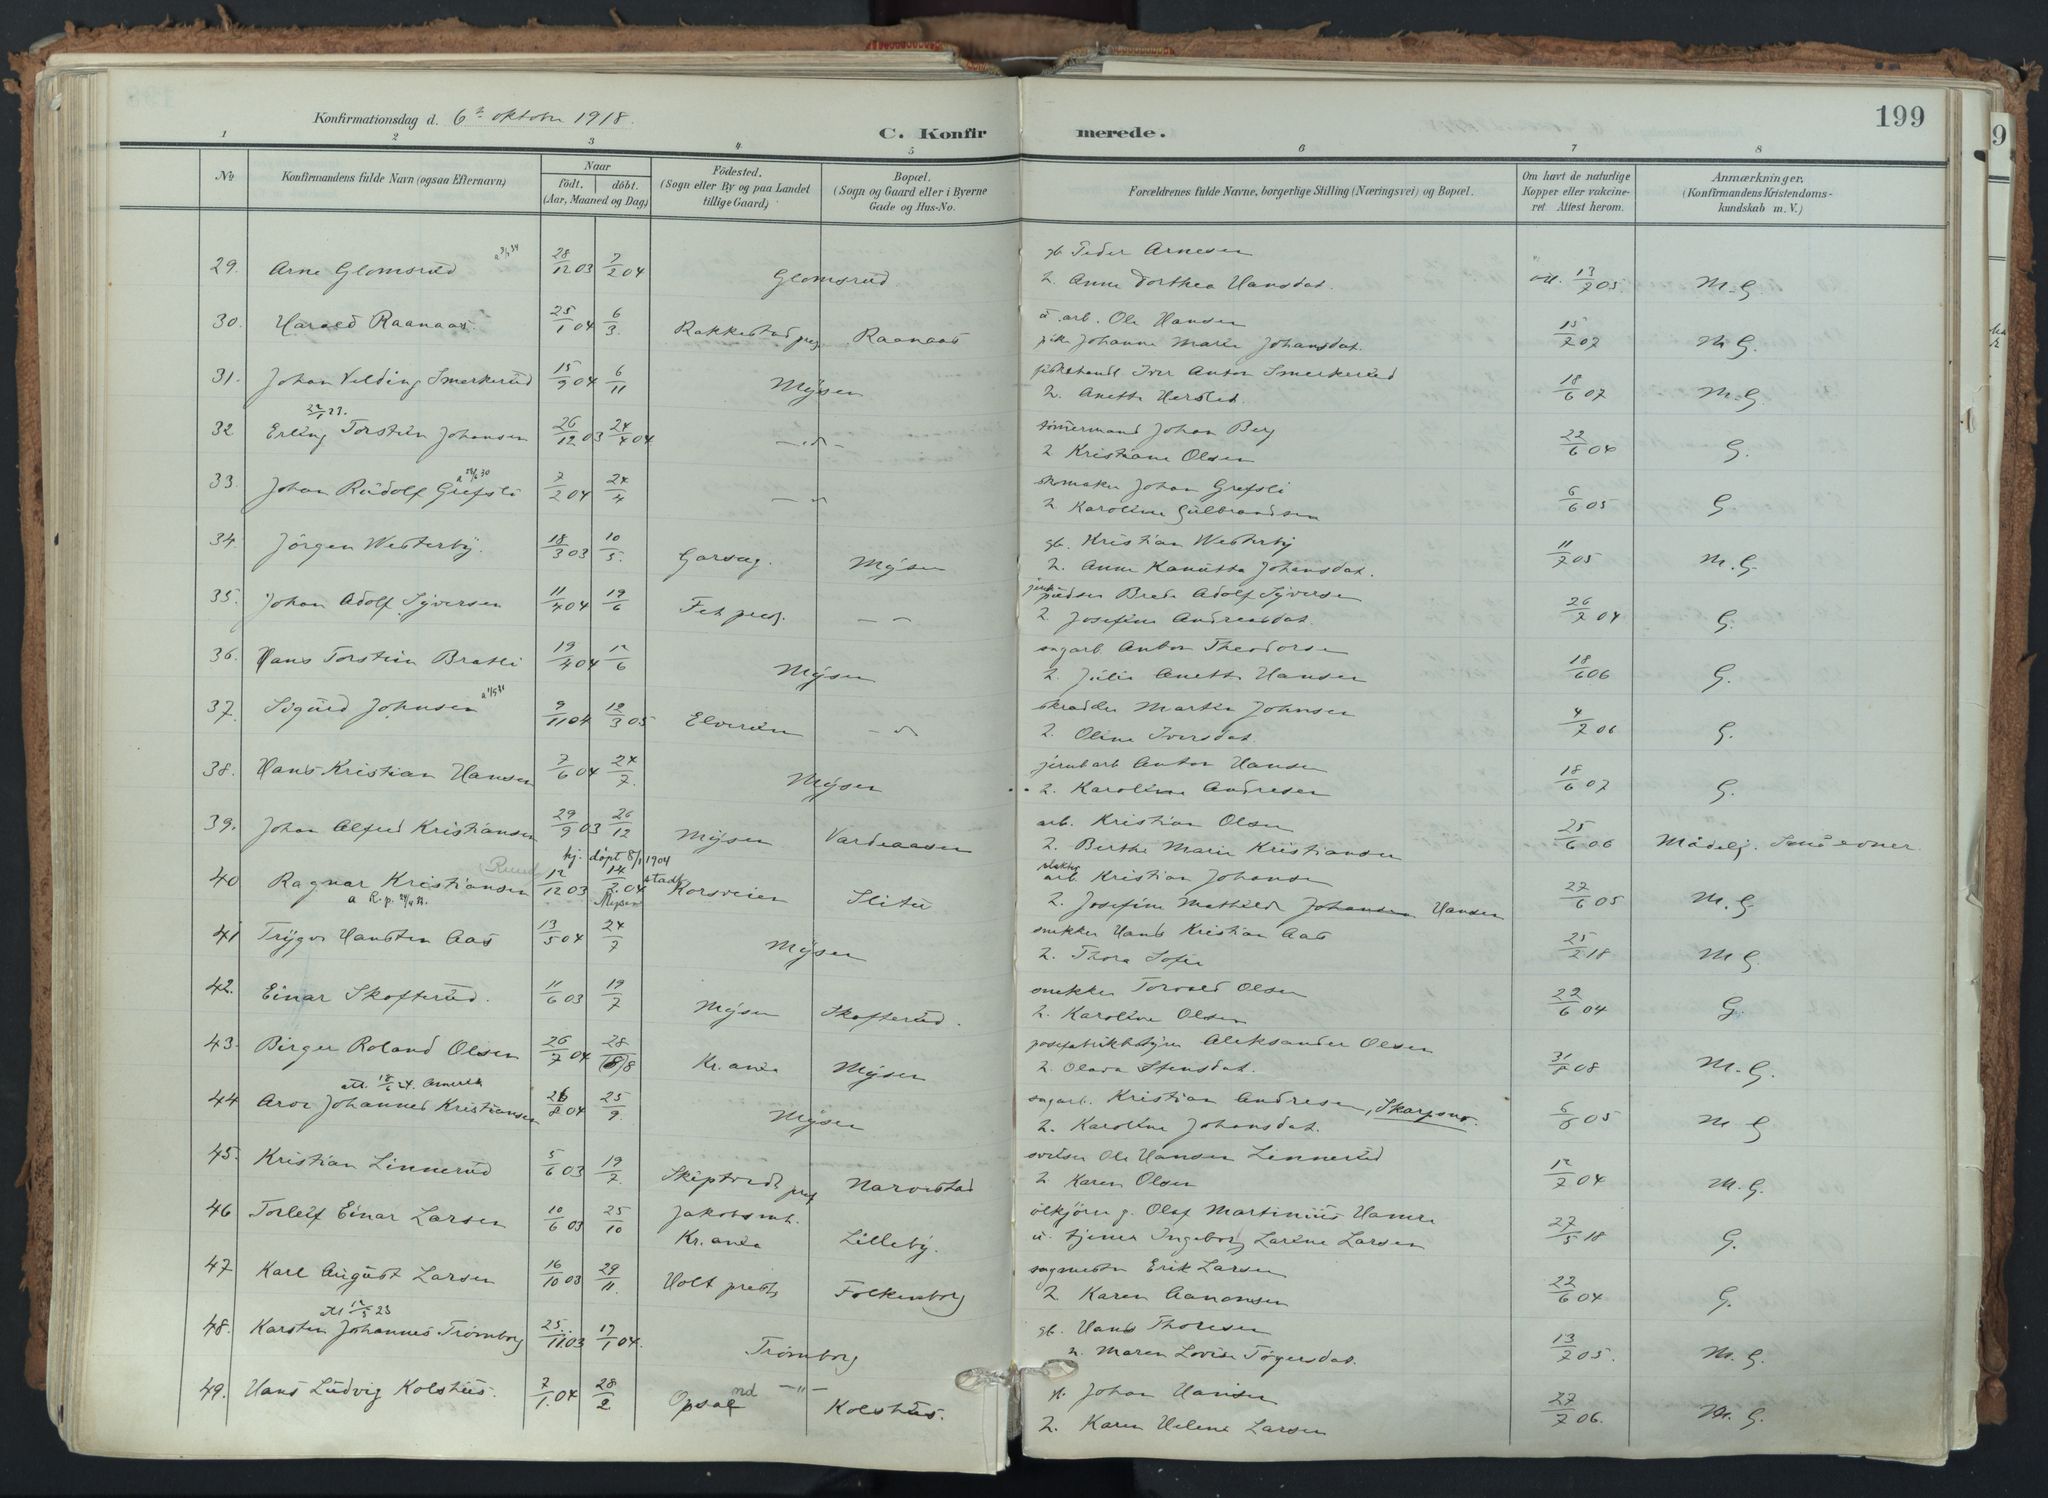 199
Konfirmationsdag d. 6 oktober 1918.
C. Konfirmerede.
1 2 3 4 5 6 7 8
No
Konfirmandens fulde Navn (ogsaa Efternavn)
Naar
födt. döbt.
(Aar, Maaned og Dag)
Födested.
(Sogn eller By og paa Landet
tillige Gaard)
Bopæl.
(Sogn og Gaard eller i Byerne
Gade og Hus-No.
Forældrenes fulde Navne, borgerlige Stilling (Næringsvei) og Bopæl.
Om havt de naturlige
Kopper eller vakcine-
ret. Attest herom.
Anmærkninger.
(Konfirmandens Kristendoms-
kundskab m. V.)
29. Arne Glomsrud 28/12 03 7/2 04 Glomsrud. gb Peder Arnesen 13/7 05 M.G.
2. Anne Dorthea Hansdat.
30. Harald Raanaas 25/1 04 6/3 Rakkestad Raanaas arb. Ole Hansen 15/7 07 M G.
pike Johanne Marie Johansdat.
31. Johan Velding Smerkerud 15/9 04 6/11 Mysen Iver Anton Smerkerud 18/6 07 M.G.
2. Anette Hersled.
32 Erling Torstein Johansen 26/12 03 24/4 04 tømmermand Johan Berg 22/6 04 G.
2 Kristiane Olsen
33. Johan Rudolf Grefsli 7/2 04 24/4 skomaker Johan Grefsli 6/6 05 G.
2 Karoline Gulbrandsen
34. Jørgen Westerby. 18/3 03 10/5. Garseg. Mysen gb. Kristian Westerby 11/7 05 M.G.
2. Anne Kanutta Johansdat.
35. Johan Adolf Syversen 11/4 04 19/6 Fet prest. Adolf Syversen 26/7 04 G.
2. Josefine Andreasdat.
36. Hans Torstein Bratli 19/4 04 12/6 Mysen sagarb. Anton Theodorsen 18/6 06 G.
2. Julie Anette Hansen
37. Sigurd Johnsen 9/11 04 12/3 05 Elverum skrædder Martin Johnsen 4/7 06 G.
2. Oline Iversdat.
38. Hans Kristian Hansen 7/6 04 24/7 Mysen jernbarb Anton Hansen 18/6 07 G.
2. Karoline Andresen
39. Johan Alfred Kristiansen 29/9 03 26/12 Mysen Vardeaasen arb. Kristian Olsen 25/6 06 Mådelj. Små evner.
2. Berthe Marie Kristiansen
hj. døpt 8/1 1904
40 Ragnar Kristiansen 12/12 03 14/2 04 stadf. Mysen Korsveien Slitu slakter arb Kristian Johansen 27/6 05 M.G
2. Josefine Mathilde Johansen Hansen
41 Trygve Hansten Aas 13/5 04 24/7 Mysen snekker Hans Kristian Aas 25/2 18 M G.
2. Thora Sofie
42. Einar Skofterud. 11/6 03 19/7 Mysen Skofterud. snekker Torvald Olsen 22/6 04 G.
2. Karoline Olsen
43. Birger Roland Olsen 26/7 04 28/8 Kr.ania Mysen posefabrikbestyrer Aleksander Olsen 31/8 08 M.G.
2. Olava Stensdat.
44 Johannes Kristiansen 26/8 04 25/9. Mysen sagarb. Kristian Andresen, Skarpsno. 6/6 05 M G
2. Karoline Johansdat.
45. Kristian Linnerud 5/6 03 19/7. Skiptvedt Narvestad Ole Hansen Linnerud 12/7 04 M.G.
2 Karen Olsen
46 Torleif Einar Larsen 10/6 03 25/10 Jakobsmt. Kr.ania Lilleby. ølkjører g. Olaf Martinius Hamre 27/5 18 G.
u. tjener Ingeborg Larine Larsen
47 Karl August Larsen 16/10 03 29/11. Holt prests Folkenborg sagmester Erik Larsen 22/6 04 G.
2. Karen Aanonsen
48. Karsten Johannes Trømborg 25/11 03 17/1 04. Trømborg gb. Hans Thoresen 13/7 05. M.G.
2. Maren Lovise Tøgersdat.
49. Hans Ludvig Kolshus. 7/1 04 28/2 Opsal Kolshus. gb. Johan Hansen 27/7 06. M.G.
2. Karen Helene Larsen